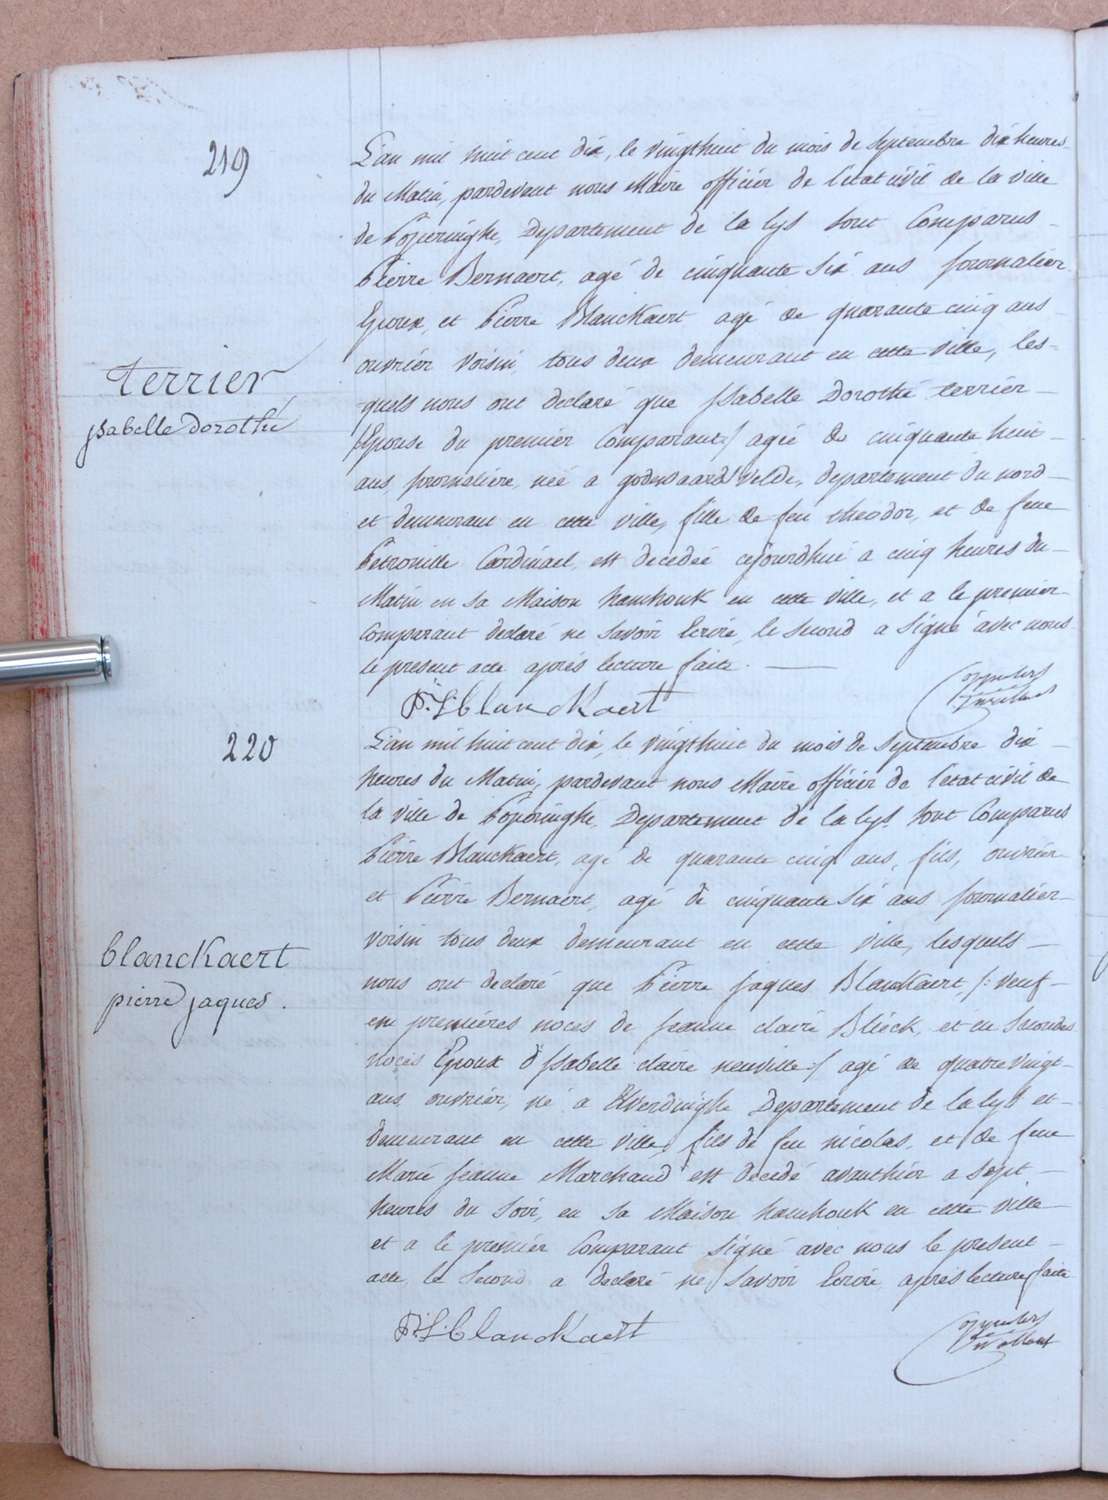 219
L'an mil huit cent dix, le vingthuit du mois de septembre dix heures
du Matin, pardevant nous Maire officier de l'etat civil de la ville
de Poperinghe, Departement de la lys sont Comparus
Pierre Bernaert, agé de cinquante six ans journalier
Epoux, et Pierre Blanckaert agé de quarante cinq ans
ouvrier voisin, tous deux demeurant en cette ville, les-
quels nous ont declaré que Isabelle Dorothé terrier
terrier
isabelle dorothé
/Epouse du premier Comparant:/ agée de cinquante huit
ans, journaliere, née a godewaardsvelde, departement du nord
et demeurant en cette ville, fille de feu theodor, et de feue
Petronille Cardinael, est decedée cejourdhui a cinq heures du
Matin en sa Maison hamhouk en cette ville, et a le premier
Comparant declaré ne savoir Ecrire, le second a signé avec nous
le present acte après lecture faite.
P:J:blanckaert
220
L'an mil huit cent dix, le vingthuit du mois de septembre dix
heures du Matin, pardevant nous Maire officier de l'etat civil de
la ville de Poperinghe, Departement de la lys sont Comparus
Pierre Blanckaert, agé de quarante cinq ans, fils, ouvrier
et Pierre Bernaert, agé de cinquante six ans journalier
voisin tous deux demeurant en cette ville, lesquels
blanckaert
pierre jaques.
nous ont declaré que Pierre jaques Blanckaert, /: veuf
en premières noces de jeanne claire Blieck, et en secondes
noces Epoux d'Isabelle claire neuville:/ agé de quatre vingt
ans, ouvrier, né a Elverdinghe Departement de la lys et
demeurant en cette ville, fils de feu nicolas, et de feue
Marie jeanne Marchand est decedé avanthier a sept
heures du soir, en sa Maison hamhouk en cette ville
et a le premier Comparant signé avec nous le present
acte, le second a declaré ne savoir Ecrire, après lecture faite
P:J:blanckaert